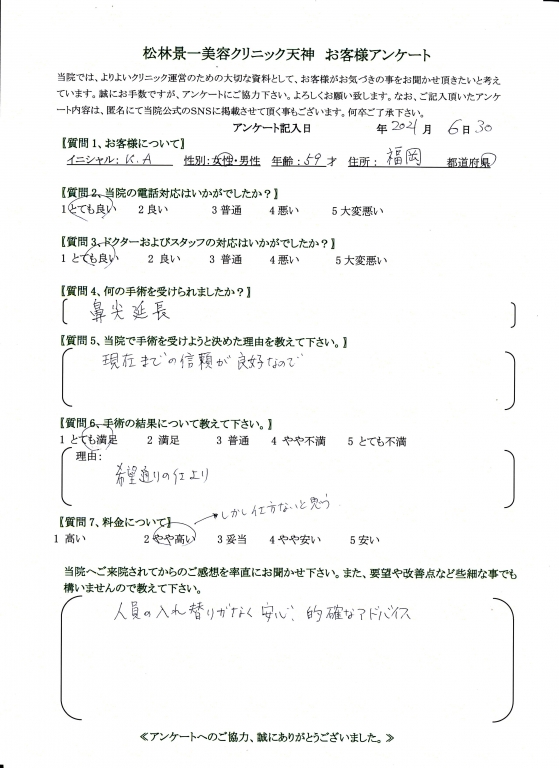 松林景一美容クリニック天神 お客様アンケート
当院では、よりよいクリニック運営のための大切な資料として、お客様がお気づきの事をお聞かせ頂きたいと考え
ています。誠にお手数ですが、アンケートにご協力下さい。よろしくお願い致します。なお、ご記入頂いたアンケ
ート内容は、匿名にて当院公式のSNSに掲載させて頂く事もございます。何卒ご了承下さい。
アンケート記入日 年 2021 月 6 日 30
【質問1、お客様について】
イニシャル: K.A 性別:女性・男性 年齢:59才 住所: 福岡 都道府県
【質問2、当院の電話対応はいかがでしたか?】
1 とても良い 2 良い 3 普通 4 悪い 5 大変悪い
【質問3、ドクターおよびスタッフの対応はいかがでしたか?】
1 とても良い 2 良い 3 普通 4 悪い 5 大変悪い
【質問4、何の手術を受けられましたか?】
鼻尖延長
【質問5、当院で手術を受けようと決めた理由を教えて下さい。】
現在までの信頼が良好なので
【質問6、手術の結果について教えて下さい。】
1 とても満足 2 満足 3 普通 4 やや不満 5 とても不満
理由:
希望通りの仕上り
しかし仕方ないと思う
【質問7、料金について】
1 高い 2 やや高い 3 妥当 4 やや安い 5 安い
当院へご来院されてからのご感想を率直にお聞かせ下さい。また、要望や改善点など些細な事でも
構いませんので教えて下さい。
人員の入れ替りがなく安心、的確なアドバイス
≪アンケートへのご協力、誠にありがとうございました。≫